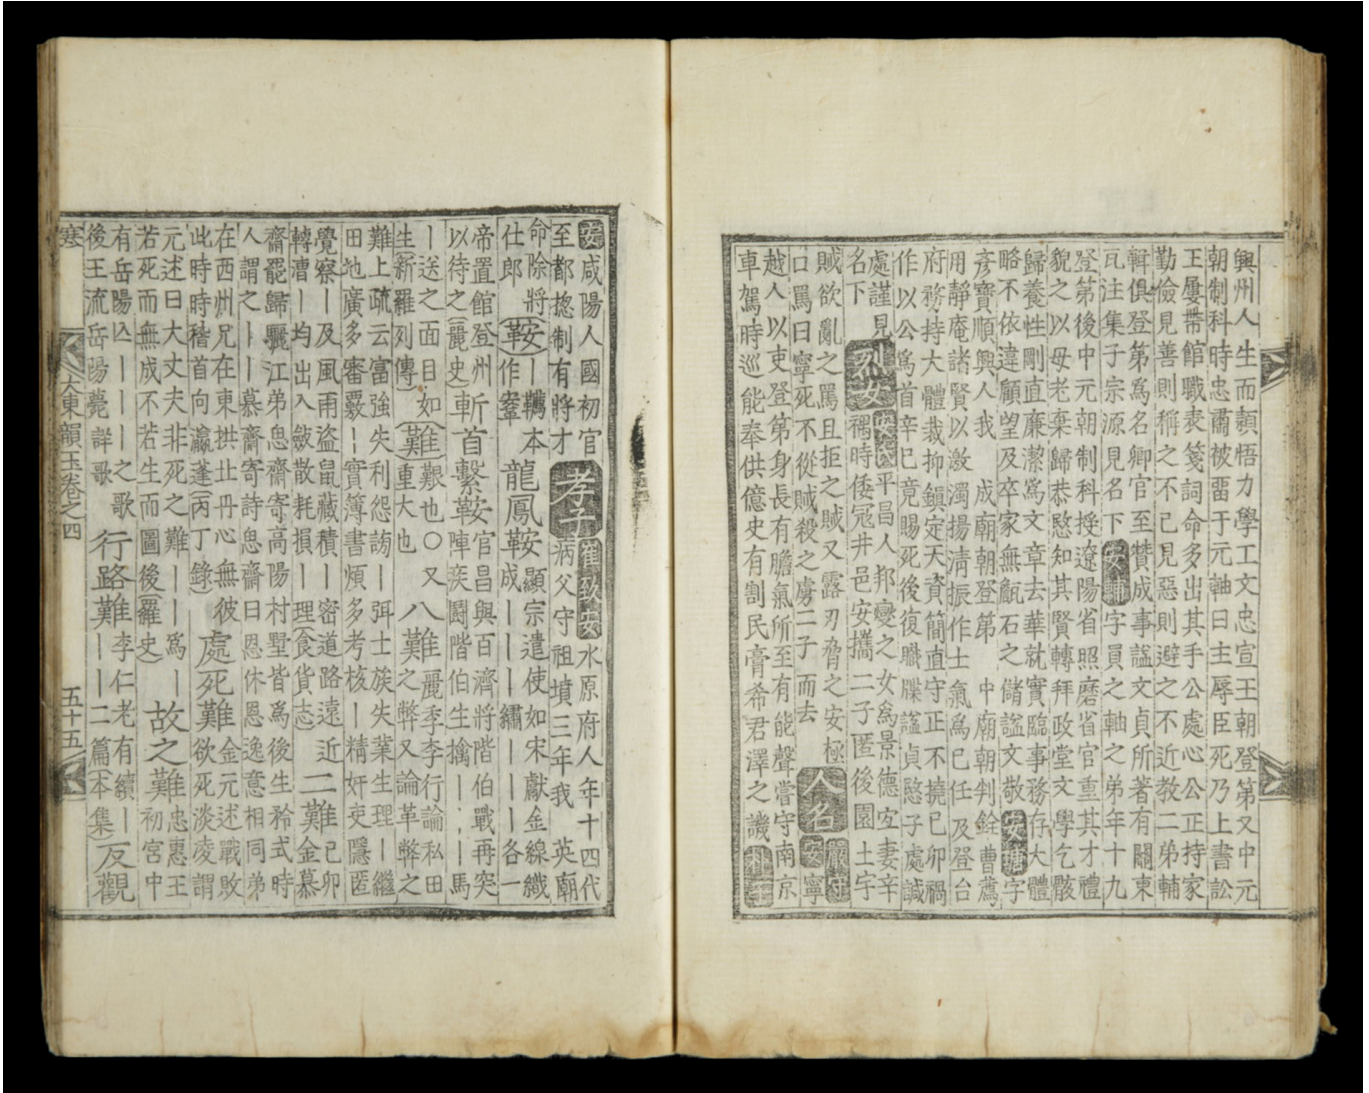 興州人生而穎悟力學工文忠宣王朝登第又中元
朝制科時忠肅被留于元軸曰主辱臣死乃上書訟
王屢帶館職表箋詞命多出其手公處心公正持家
勤儉見善則稱之不已見惡則避之不近教二弟輔
輯俱登第爲名卿官至贊成事謚文貞所著有關東
瓦注集子宗源見名下 安輔 字員之軸之弟年十九
登第後中元朝制科授遼陽省照磨省官重其才禮
貌之以母老棄歸恭愍知其賢轉拜政堂文學乞骸
歸養性剛直廉潔爲文章去華就實臨事務存大體
略不依違顧望及卒家無甔石之儲謚文敬 安瑭 字
彦寶順興人我 成廟朝登第 中廟朝判銓曹薦
用靜庵諸賢以激濁揚清振作士氣爲已任及登台
府務持大體裁抑鎭定天資簡直守正不撓已卯禍
作以公爲首辛巳竟賜死後復職牒謚貞愍子處諴
處謹見 烈女 平昌人邦變之女爲景德宜妻辛
名下 禑時倭寇井邑安攜二子匿後園土宇
賊欲亂之罵且拒之賊又露刃脅之安極
口罵曰寧死不從賊殺之虜二子而去 人名
越人以吏登第身長有膽氣所至有能聲嘗守南京
車駕時巡能奉供億史有割民膏希君澤之譏
安 咸陽人國初官
至都摠制有將才 孝子 崔致安 水原府人年十四代
病父守祖墳三年我 英廟
命除將
仕郎 鞍 ｜韉本作鞌 龍鳳鞍 顯宗遣使如宋獻金線織
成｜｜｜繡｜｜｜｜各一
帝置館登州
以待之 麗史 斬首繫鞍 官昌與百濟將階伯戰再突
陣疾鬪階伯生擒｜｜｜｜馬
｜送之面目如
生 新羅列傳 難 艱也○又重大也 八難 麗季李行論私田
之弊又論革弊之
難上疏云富強失利怨謗｜弭士族失業生理｜繼
田地廣多審覈｜實簿書煩多考核｜精奸吏隱匿
覺察｜及風雨盜鼠藏積｜密道路遠近
轉漕｜均出入斂散耗損｜理 食貨志 二難 已卯金慕
齋罷歸驪江弟思齋寄高陽村墅皆爲後生矜式時
人謂之｜｜慕齋寄詩思齋曰恩休恩逸意相同弟
在西州兄在東拱北丹心無彼
此時時稽首向瀛蓬 丙丁錄 處死難 金元述戰敗
欲死淡凌謂
元述曰大丈夫非死之難｜｜爲｜
若死而無成不若生而圖後 羅史 故之難 忠惠王
初宮中
有岳陽亾｜｜｜之歌
後王流岳陽薨詳歌 行路難 李仁老有續｜
｜｜二篇 本集 反觀
塞
大東韻玉卷之四
五十五